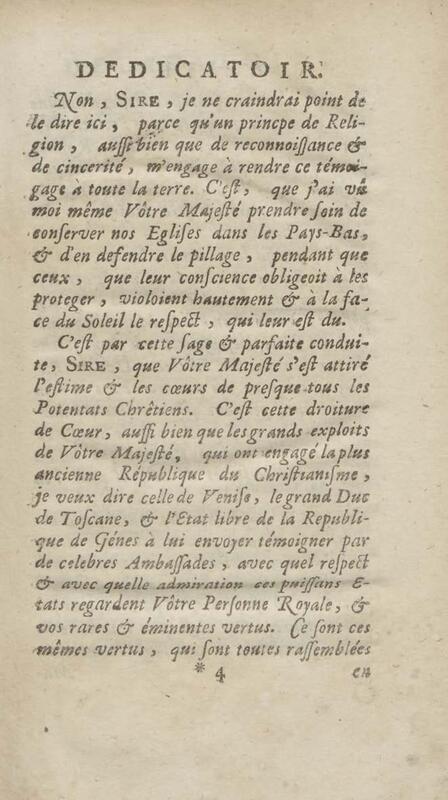 DEDICATOIR.
Non, SIRE, je ne craindrai point de
le dire ici, parce qu'un princpe de Reli-
gion, aussi bien que de reconnoissance &
de cincerité, m'engage à rendre ce témoi-
gage à toute la terre. C'est, que j'ai vû
moi même Vôtre Majesté prendre soin de
conserver nos Eglises dans les Pays-Bas,
& d'en defendre le pillage, pendant que
ceux, que leur conscience obligeoit à les
proteger, violoient hautement & à la fa-
ce du Soleil le respect, qui leur est du.
C'est par cette sage & parfaite condui-
te, SIRE, que Vôtre Majesté s'est attiré
l'estime & les cœurs de presque tous les
Potentats Chrêtiens. C'est cette droiture
de Cœur, aussi bien que les grands exploits
de Vôtre Majesté, qui ont engagé la plus
ancienne République du Christianisme,
je veux dire celle de Venise, le grand Duc
de Toscane, & l'Etat libre de la Republi-
que de Génes à lui envoyer témoigner par
de celebres Ambassades, avec quel respect
& avec quelle admiration ces puissans E-
tats regardent Vôtre Personne Royale, &
vos rares & éminentes vertus. Ce sont ces
mêmes vertus, qui sont toutes rassemblées
* 4 en